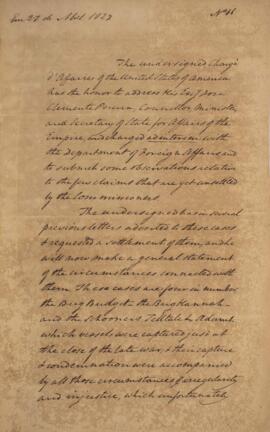 Em 27 de Abril 1829
Nº 41
The undersigned Chargé
d'Affaires of the United States of America
has the honor to address His Excy Jose
Clemente Pereira, Councillor, Minister
and Secretary of State for Affairs of the
Empire, and charged ad interim with
the Department of Foreign Affairs and
to submit some observations relation
to the few claims that are yet unsettled
by the Commissioners.
The undersigned has in several
previous letters adverted to these cases &
& requested a settlement of them, and he
will now make a general statement
of the circumstances connected with
them. These cases are four in number,
the Brig Budget the Brig Hannah
and the Schooners Telltale & Adams
which vessels were captured just at
the close of the late war, & their capture
& condemnation were accompanied
by all those circumstances of irregularity
and injustice, which unfortunately